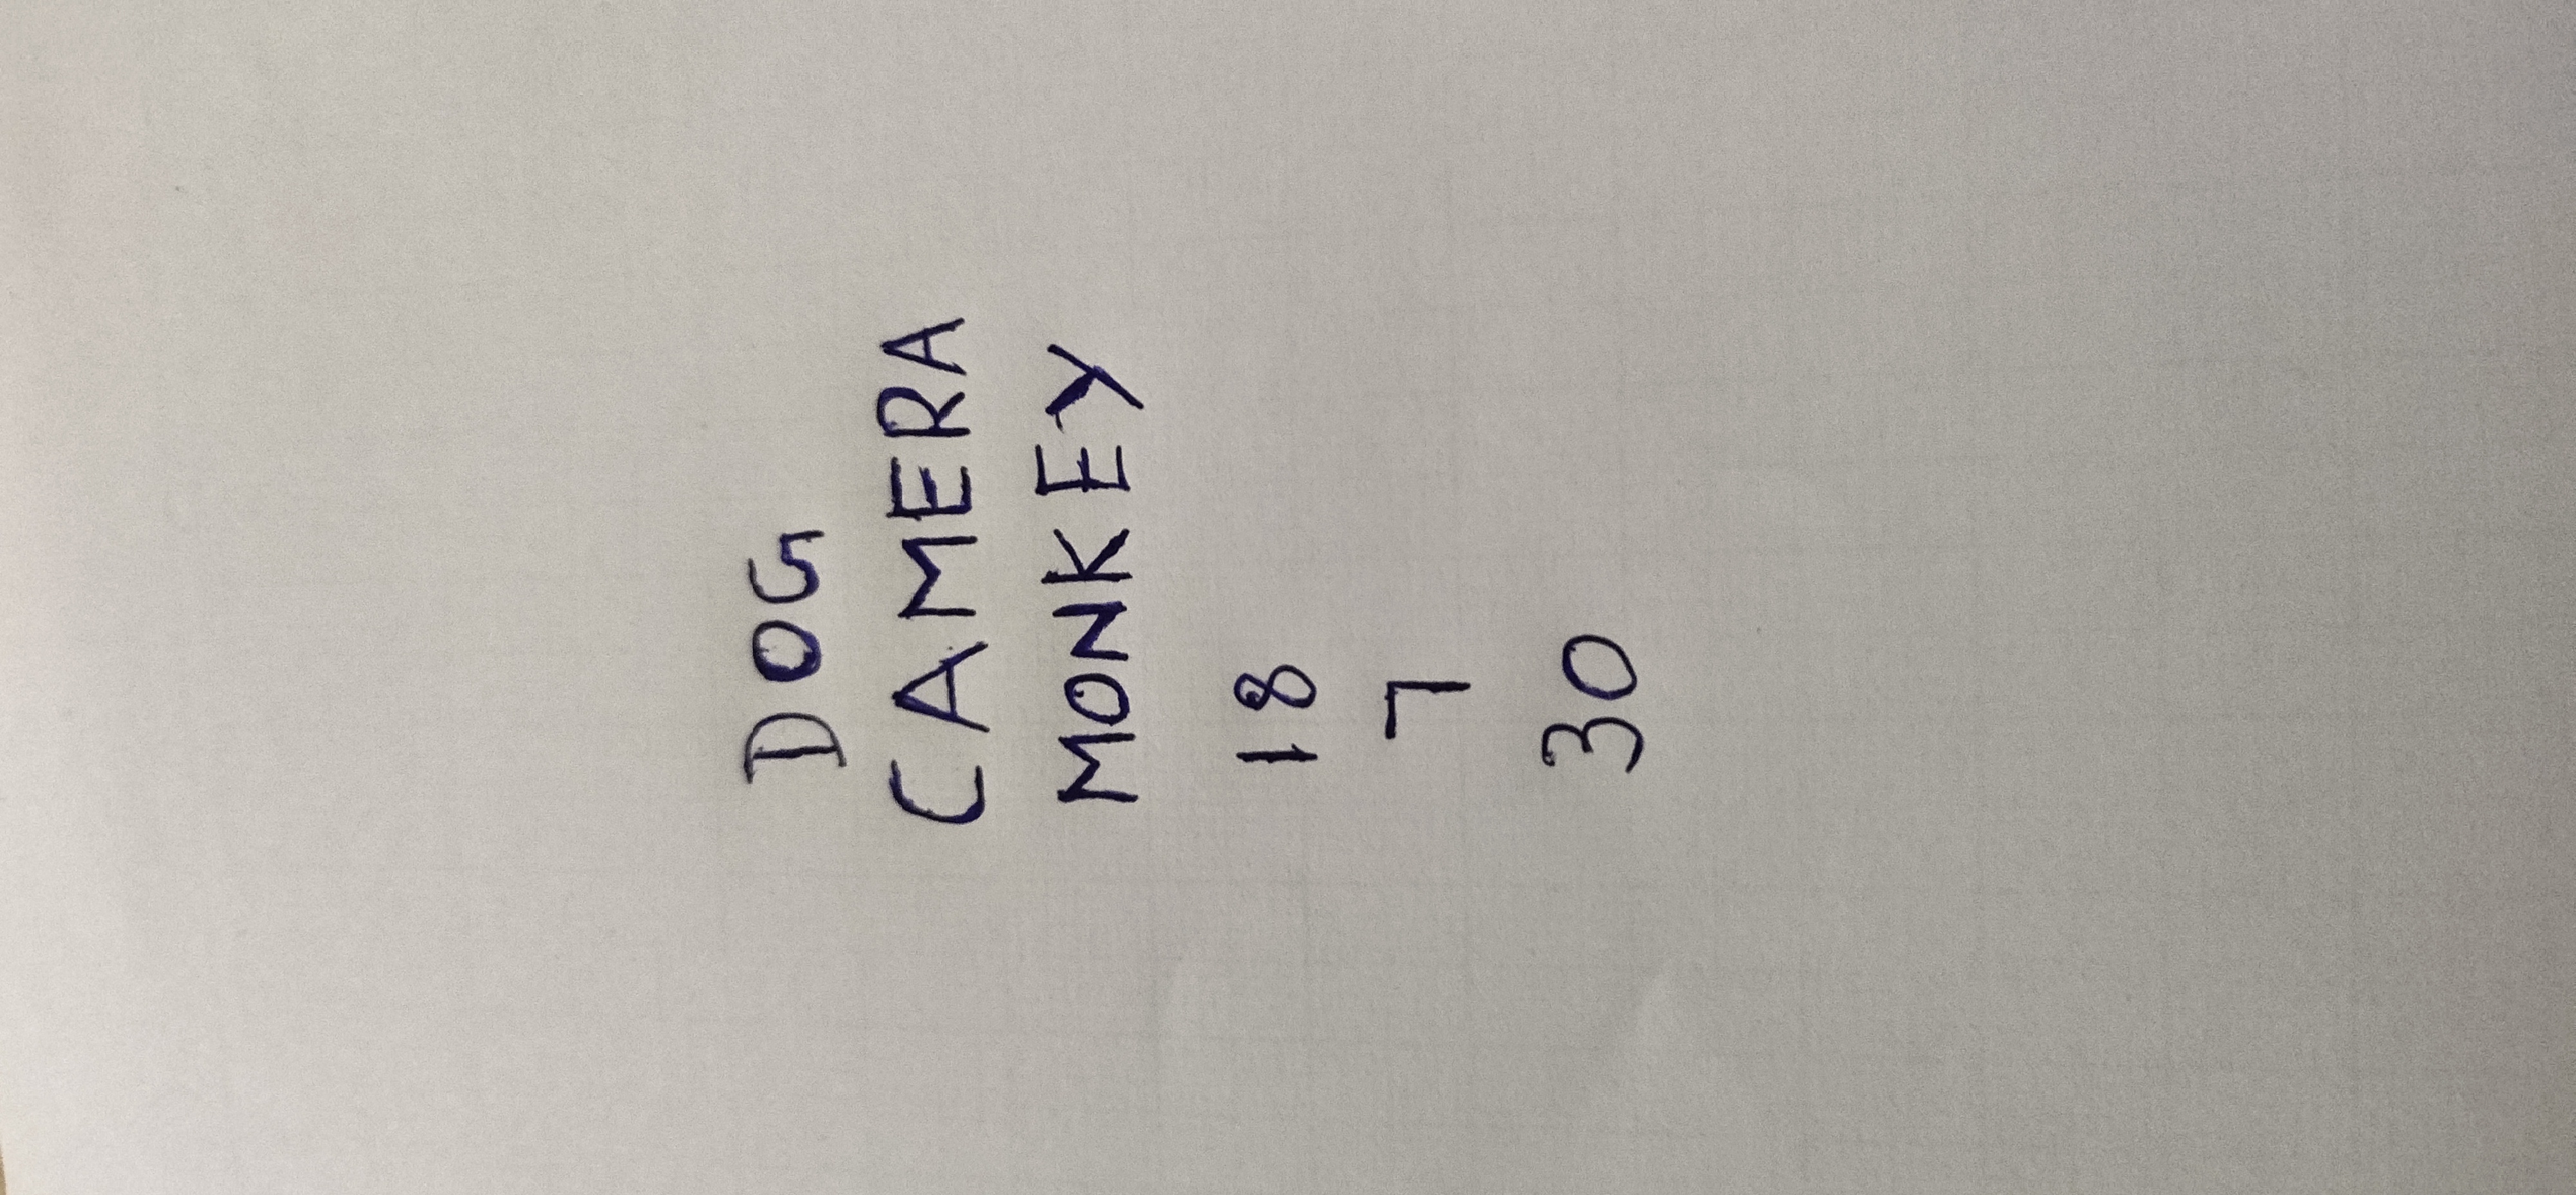 DOG
CAMERA
MONKEY
18
7
30